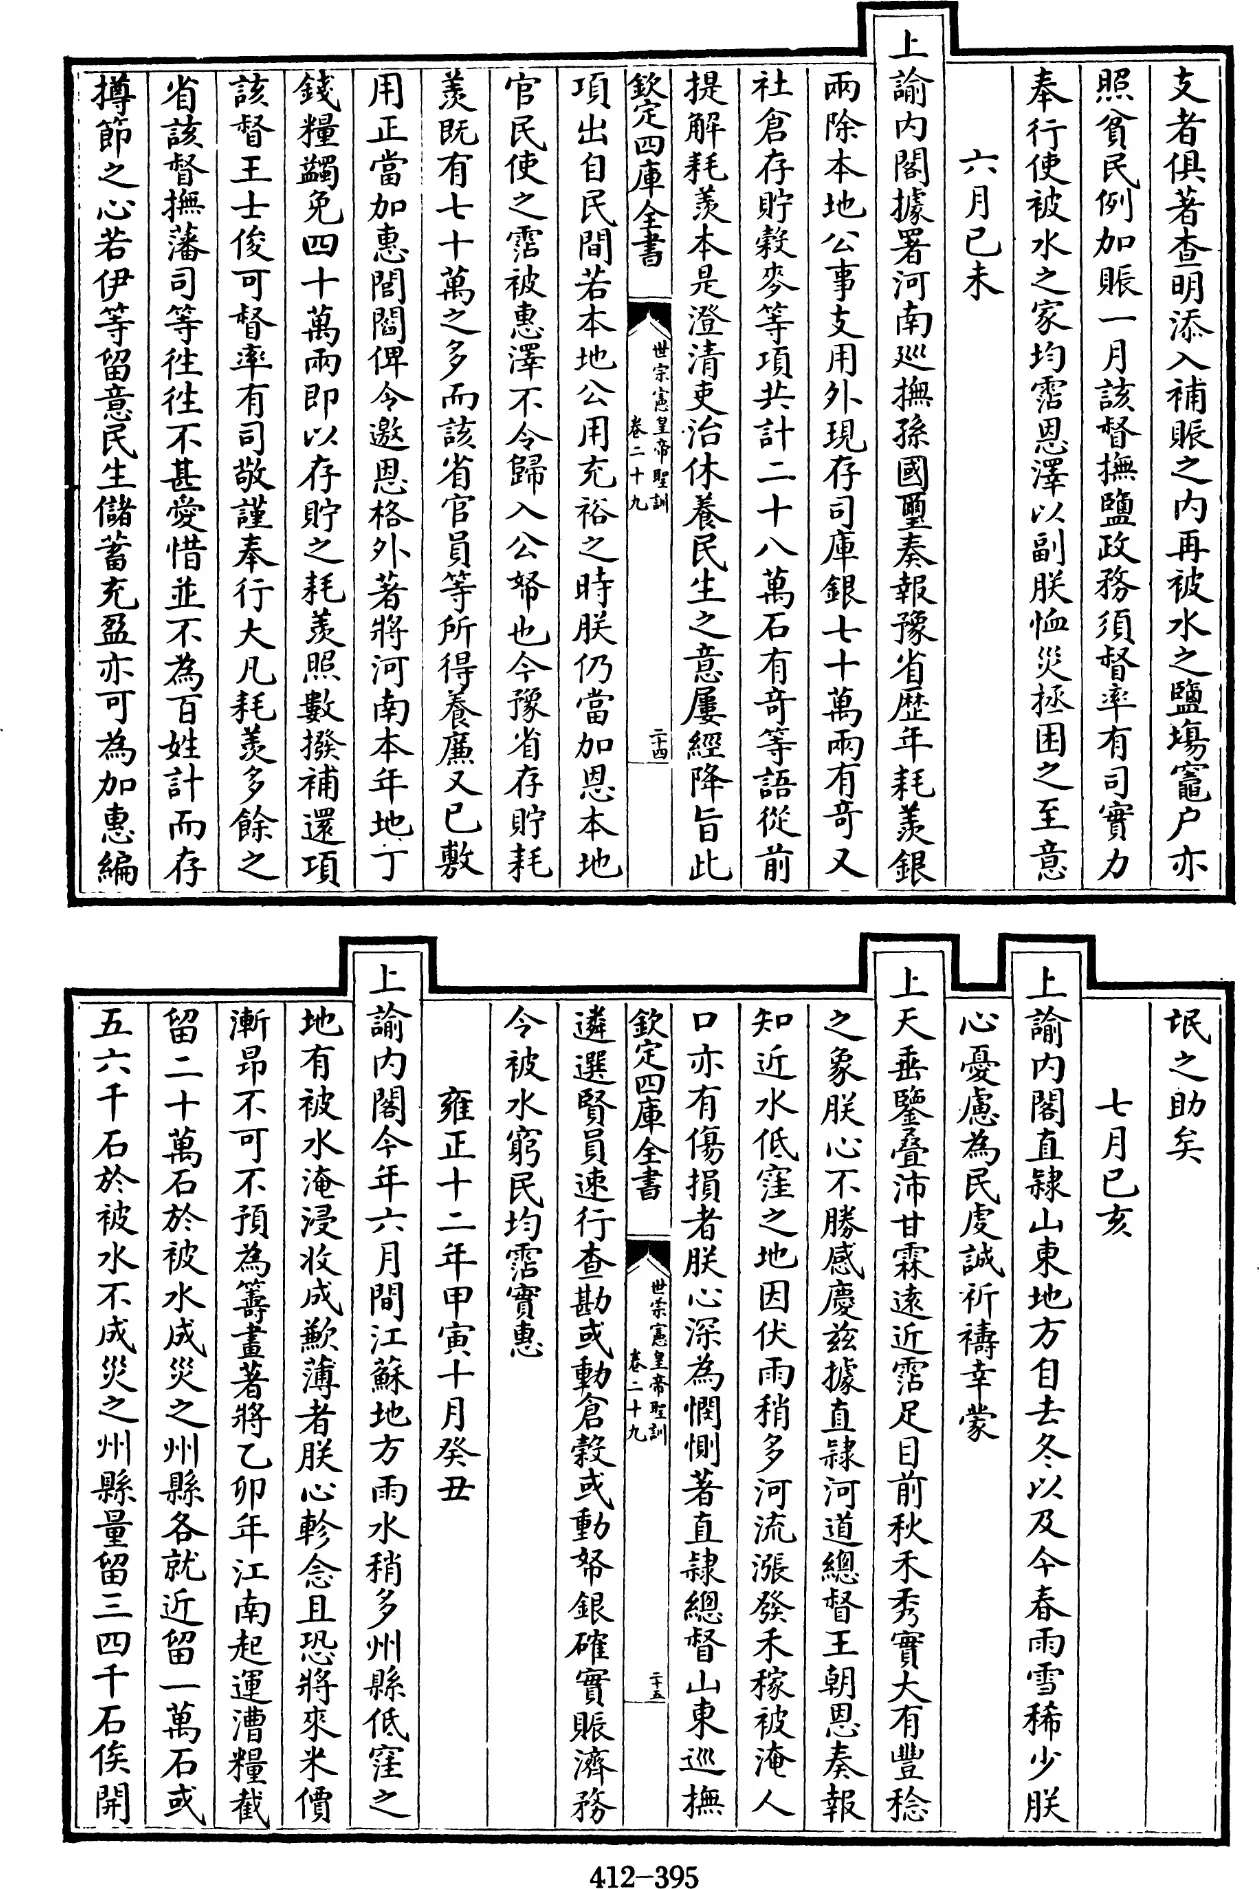 支者俱著查明添入補賬之内再被水之鹽場竈户亦
照貧民例加賬一月該督撫鹽政務須督率有司實力
奉行使被水之家均霑恩澤以副朕恤災拯困之至意
六月己未
上諭内閣據署河南巡撫孫國璽奏報豫省歴年耗羨銀
兩除本地公事支用外現存司庫銀七十萬兩有奇又
社倉存貯穀麥等項共計二十八萬石有奇等語從前
提解耗羨本是澄清吏治休養民生之意屢經降旨此
欽定四庫全書
世宗憲皇帝聖訓
卷二十九
二十四
項出自民間若本地公用充裕之時朕仍當加恩本地
官民使之霑被惠澤不令歸入公帑也今豫省存貯耗
羨既有七十萬之多而該省官員等所得養廉又已敷
用正當加惠閭閻俾令邀恩格外著將河南本年地丁
錢糧蠲免四十萬兩即以存貯之耗羨照數撥補還項
該督王士俊可督率有司敬謹奉行大凡耗羨多餘之
省該督撫藩司等徃徃不甚愛惜並不為百姓計而存
撙節之心若伊等留意民生儲蓄充盈亦可為加惠編
氓之助矣
七月己亥
上諭内閣直隸山東地方自去冬以及今春雨雪稀少朕
心憂慮為民虔誠祈禱幸蒙
上天垂鑒疊沛甘霖遠近霑足目前秋禾秀實大有豐稔
之象朕心不勝感慶兹據直隸河道總督王朝恩奏報
知近水低窪之地因伏雨稍多河流漲發禾稼被淹人
口亦有傷損者朕心深為憫惻著直隸總督山東巡撫
欽定四庫全書
世宗憲皇帝聖訓
卷二十九
二十五
遴選賢員速行查勘或動倉穀或動帑銀確實賑濟務
令被水窮民均霑實惠
雍正十二年甲寅十月癸丑
上諭内閣今年六月間江蘇地方雨水稍多州縣低窪之
地有被水淹浸收成歉薄者朕心軫念且恐將來米價
漸昂不可不預為籌畫著將乙卯年江南起運漕糧截
留二十萬石於被水成災之州縣各就近留一萬石或
五六千石於被水不成災之州縣量留三四千石俟開
412-395